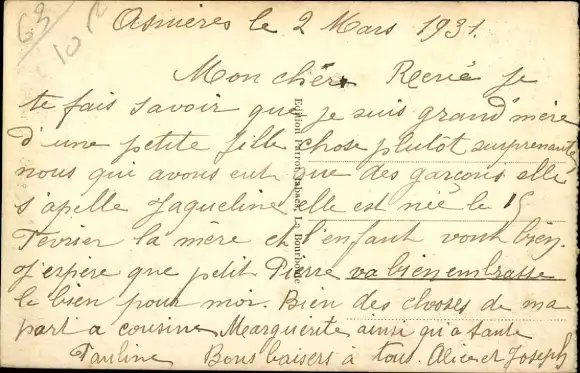 63
10
Asnières le 2 Mars 1931.
Mon chèr René je
te fais savoir que je suis grand'mère
d'une petite fille chose plutôt surprenante,
nous qui avons eut que des garçons elle
s'apelle Jaqueline elle est née le 15
Fevrier la mère et l'enfant vont bien.
J'espère que ptit Pierre va bien embrasse
le bien pour moi. Bien des chooses de ma
part a cousine Marguerite ainsi qu'a tante
Pauline Bons baisers à tous. Alice et Joseph
Edition Perrot, Tabacs, La Bourboule